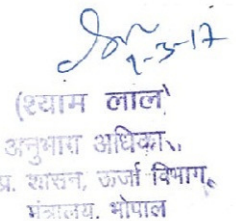 2-3-17
(श्याम लाल)
अनुभाग अधिकारी
म.प्र. शासन, ऊर्जा विभाग,
मंत्रालय, भोपाल